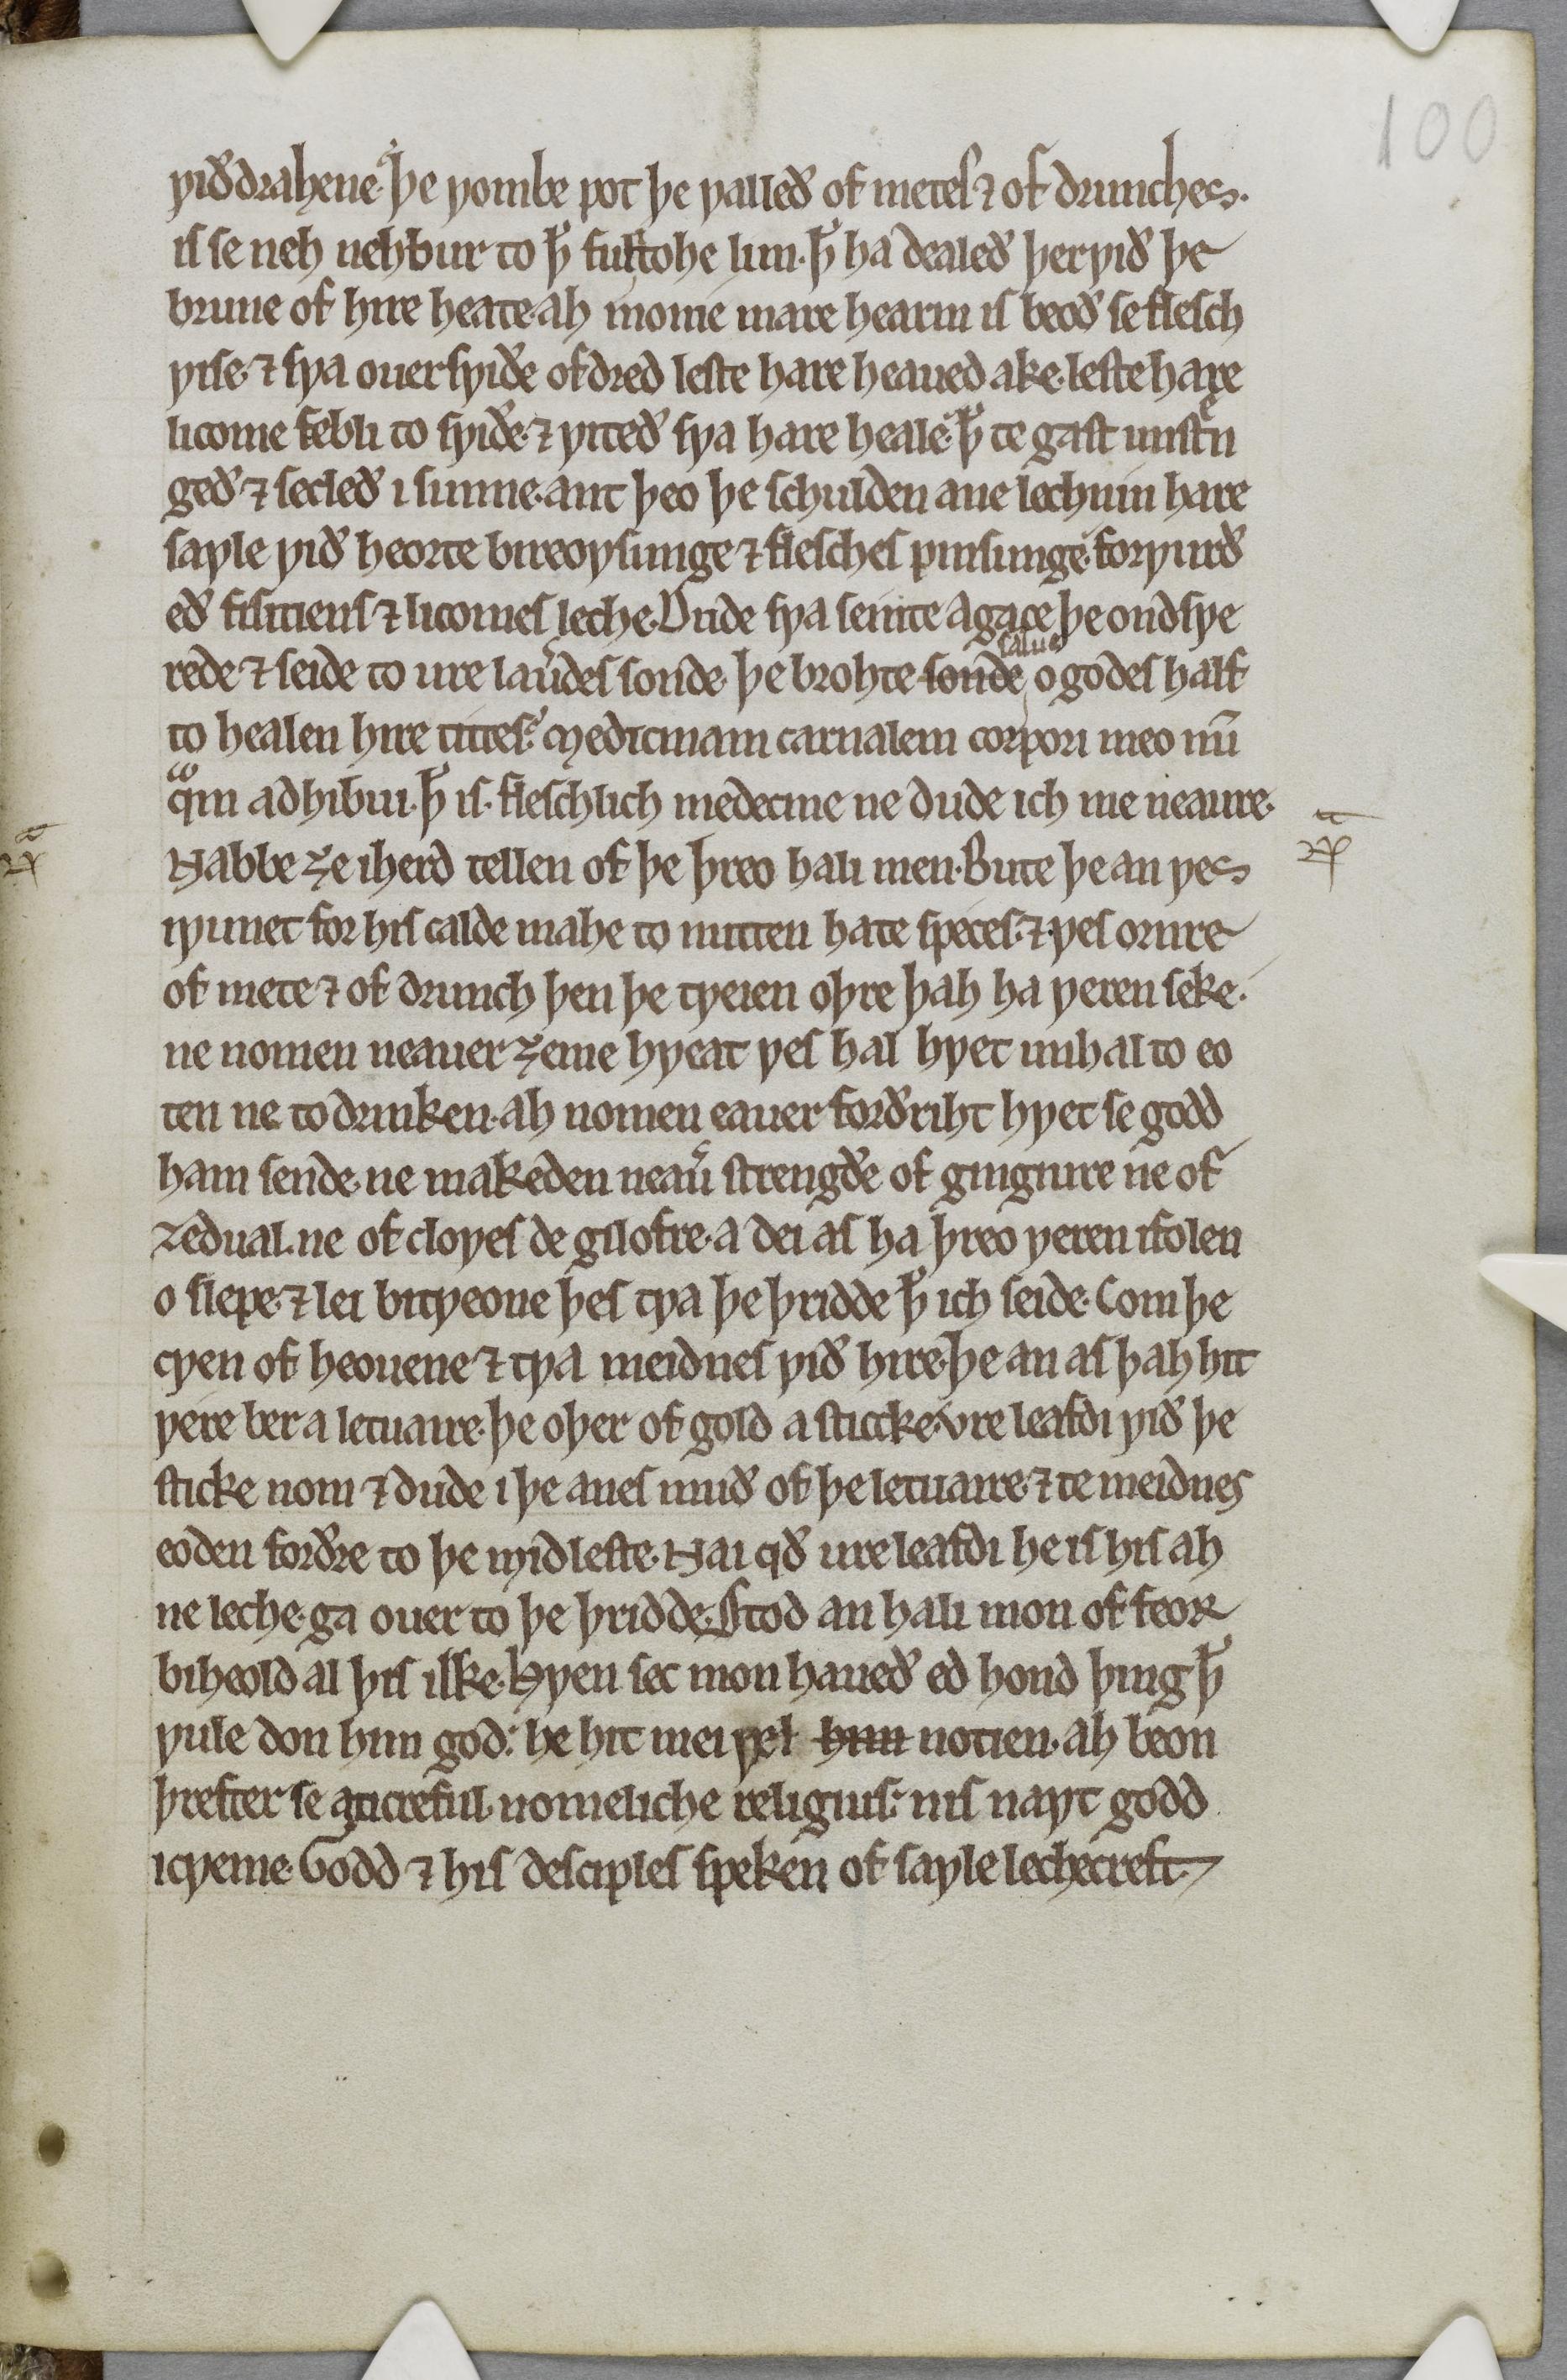 100
ƿiðdrahene. Þe ƿombe pot þe ƿalleð of metes ⁊ of drunches.
is se neh nehbur to ꝥ fultohe lim. ꝥ ha dealeð þerƿið þe
brune of hire heate. ah monie mare hearm is beoð se flesch
ƿise. ⁊ sƿa ouersƿiðe ofdred leste hare heaued ake. leste hare
licome febli to sƿiðe. ⁊ ƿiteð sƿa hare heale. ꝥ te gast unstren
geð ⁊ secleð i sunne. ant þeo þe schulden ane lechnin hare
saƿle ƿið heorte bireoƿsunge ⁊ flesches pinsunge. forƿurð
eð fisitiens ⁊ licomes leche. Dude sƿa seinte agace þe ondsƿe
rede ⁊ seide to ure lauerdes sonde þe brohte sonde salue o godes half
to healen hire tittes. Medicinam carnalem corpori meo nū
qm̄ adhibui. ꝥ is. fleschlich medecine ne dude ich me neaure.
Habbe ȝe iherd tellen of þe þreo hali men. Bute þe an ƿes
iƿunet for his calde mahe to nutten hate speces. ⁊ ƿes ornre
of mete ⁊ of drunch þen þe tƿeien oþre þah ha ƿeren seke.
ne nomen neauer ȝeme hƿeat ƿes hal hƿet unhal to eo
ten ne to drinken. ah nomen eauer forðriht hƿet se godd
ham sende. ne makeden neauer strengðe of gingiure ne of
zedual. ne of cloƿes de gilofre. a dei as ha þreo ƿeren ifolen
o slepe. ⁊ lei bitƿeone þes tƿa þe þridde ꝥ ich seide. Com þe
cƿen of heouene ⁊ tƿa meidnes ƿið hire. þe an as þah hit
ƿere ber a letuaire. þe oþer of gold a sticcke. vre leafdi ƿið þe
sticke nom ⁊ dude i þe anes muð of þe letuaire. ⁊ te meidnes
eoden forðre to þe midleste. Nai qð ure leafdi he is his ah
ne leche. ga ouer to þe þridde. Stod an hali mon of feor
biheold al þis ilke. Hƿen sec mon haueð ed hond þing ꝥ
ƿule don him god: he hit mei ƿel him notien. ah beon
þrefter se ancreful. nomeliche religius: nis naƿt godd
icƿeme. Godd ⁊ his desciples speken of saƿle lechecreft.